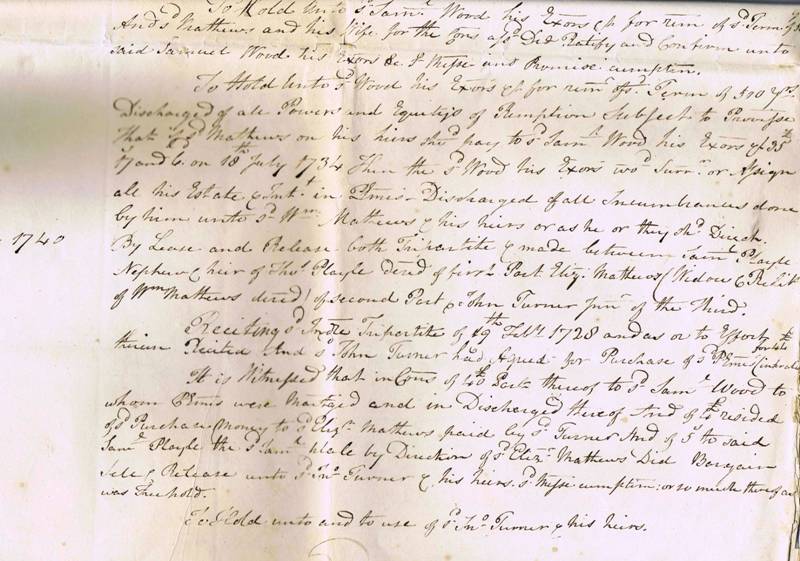 To Hold unto sd. Saml. Wood his Exors &c for rem of sd. Term
And sd. Mathews and his Wife for the Cons afsd. Did Ratify and Confirm unto
said Samuel Wood his Exors &c sd. Messe and Promise cumptem.
To Hold Unto sd. Wood his Exors &c for remr. of sd. Term of 510 Yrs.
Discharged of all Powers and Equitys of Rempton Subject to Provisoe
That if sd. Mathews on his hiers shod. pay to sd. Saml. Wood his Exors &c 35
17 and 6. on 18th July 1734 Then the sd. Wood his Exors wod. Surr. or Assign
all his Estate & Intt. in Pmis Discharged of all Incumbrances done
by him unto sd. Wm. Mathews & his heirs or as he or they shd. Direct.
1740
By Lease and Release both Tripartite & made between Saml. Playle
Nephew & heir of Thos. Playle deced of first Part Eliz. Mathews (Widow & Relict
of Wm Mathews deced) of second Part & John Turner junr. of the Third.
Reciting sd. Indre Tripartite of 19th Febr. 1728 and as or to Effect
for 40
therein Recited And sd. John Turner had Agreed for Purchase of sd. Pmis
It is Witnessed that in Cons of £40 Part thereof to sd. Saml. Wood to
whom Pmis were Martgaged and in Discharged thereof And of resided
of sd. Purchase Money to sd. Elizh. Mathews paid by sd. Turner And of 5s to said
Saml. Playle the sd. Saml. plale by Direction of sd. Eliz. Mathews Did Bargain
Sele & Release unto sd. Jno. Turner & his heirs. sd. Messe cumptem: or so much thereof as
was Freehold.
To Hold unto and to use of sd. Jno. Turner & his heirs.